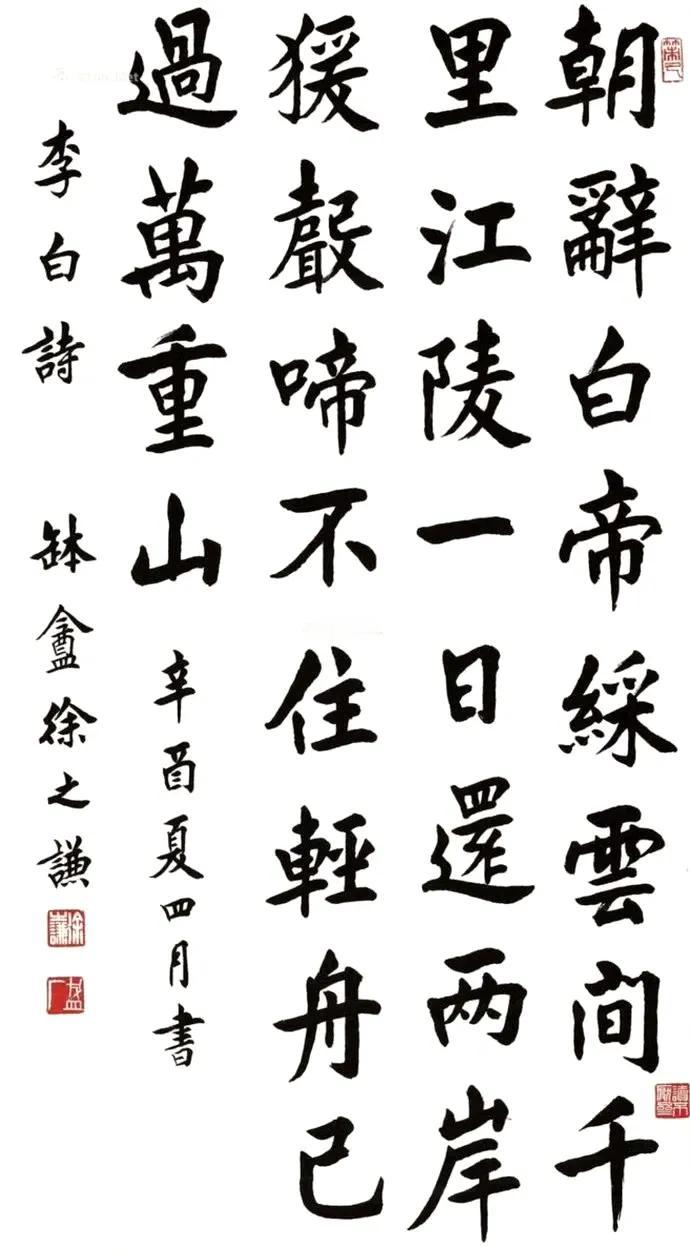 朝辭白帝綵雲間千
里江陵一日還两岸
猨聲啼不住輕舟已
過萬重山
辛酉夏四月書
李白詩
缽盦徐之謙
徐之謙